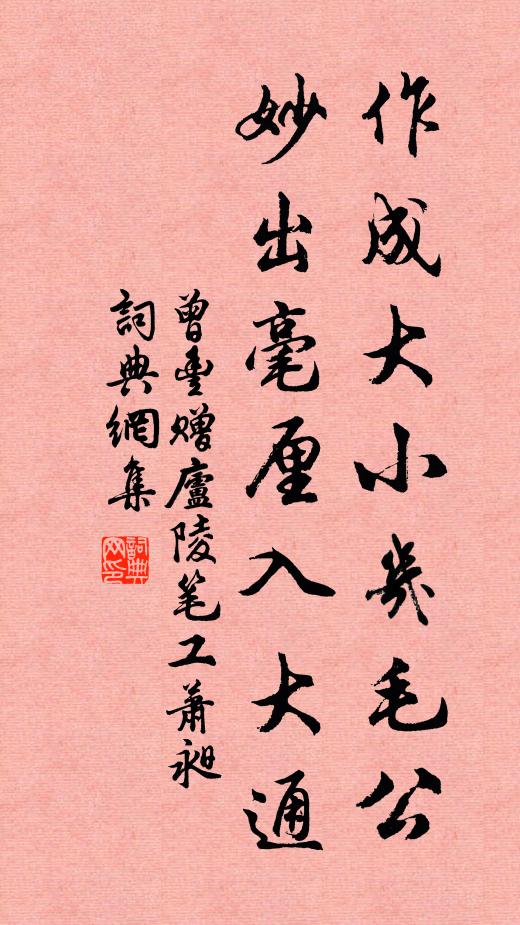 作成大小幾毛公
妙出毫厘入大通
曾豊赠廬陵笔工蕭昶
詞典網集
詞典网印